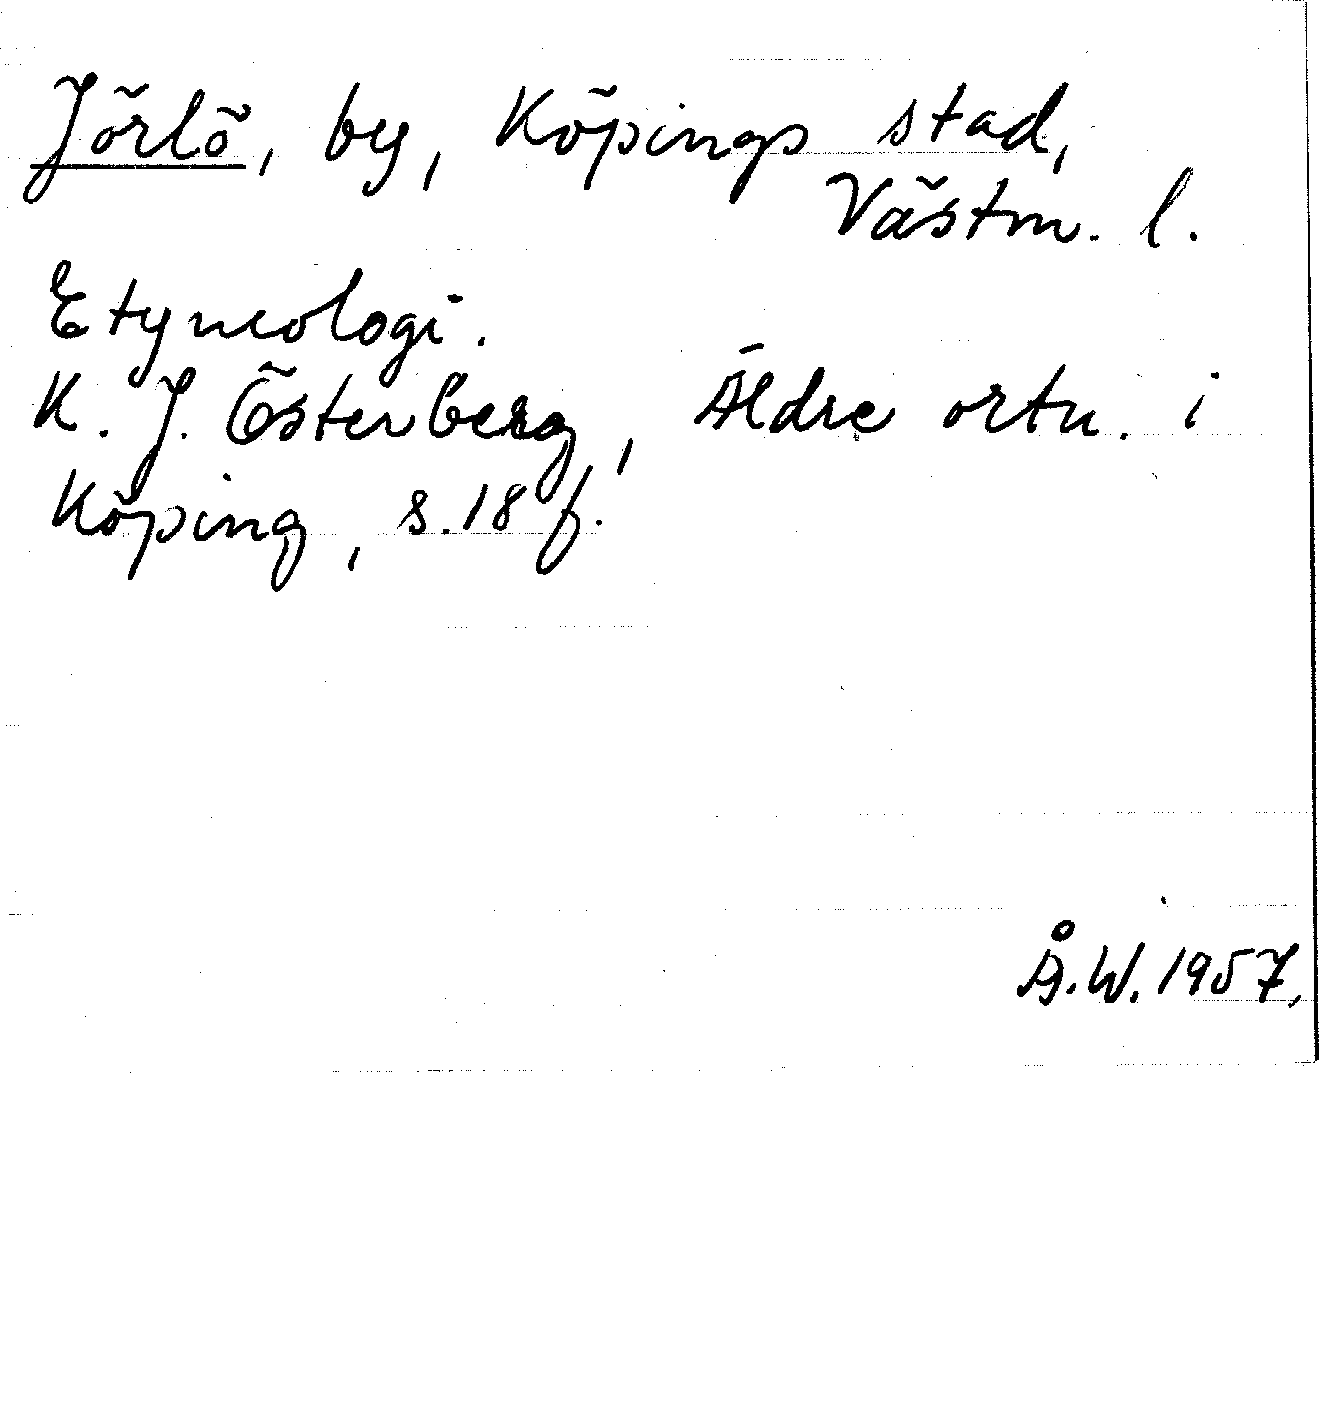 Jörlö, by, Köpings stad,
Västm. l.
Etymologi.
K. J. Österberg, Äldre ortn. i
Köping, s. 18 f.
Å. W. 1957.